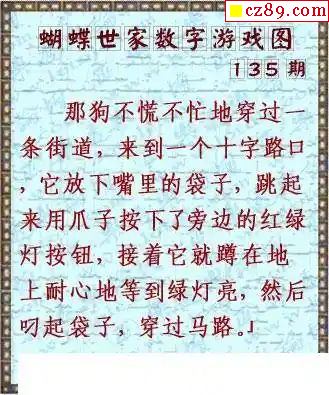 cz89.com
蝴蝶世家数字游戏图
135期
那狗不慌不忙地穿过一
条街道，来到一个十字路口
，它放下嘴里的袋子，跳起
来用爪子按下了旁边的红绿
灯按钮，接着它就蹲在地
上耐心地等到绿灯亮，然后
叼起袋子，穿过马路。」